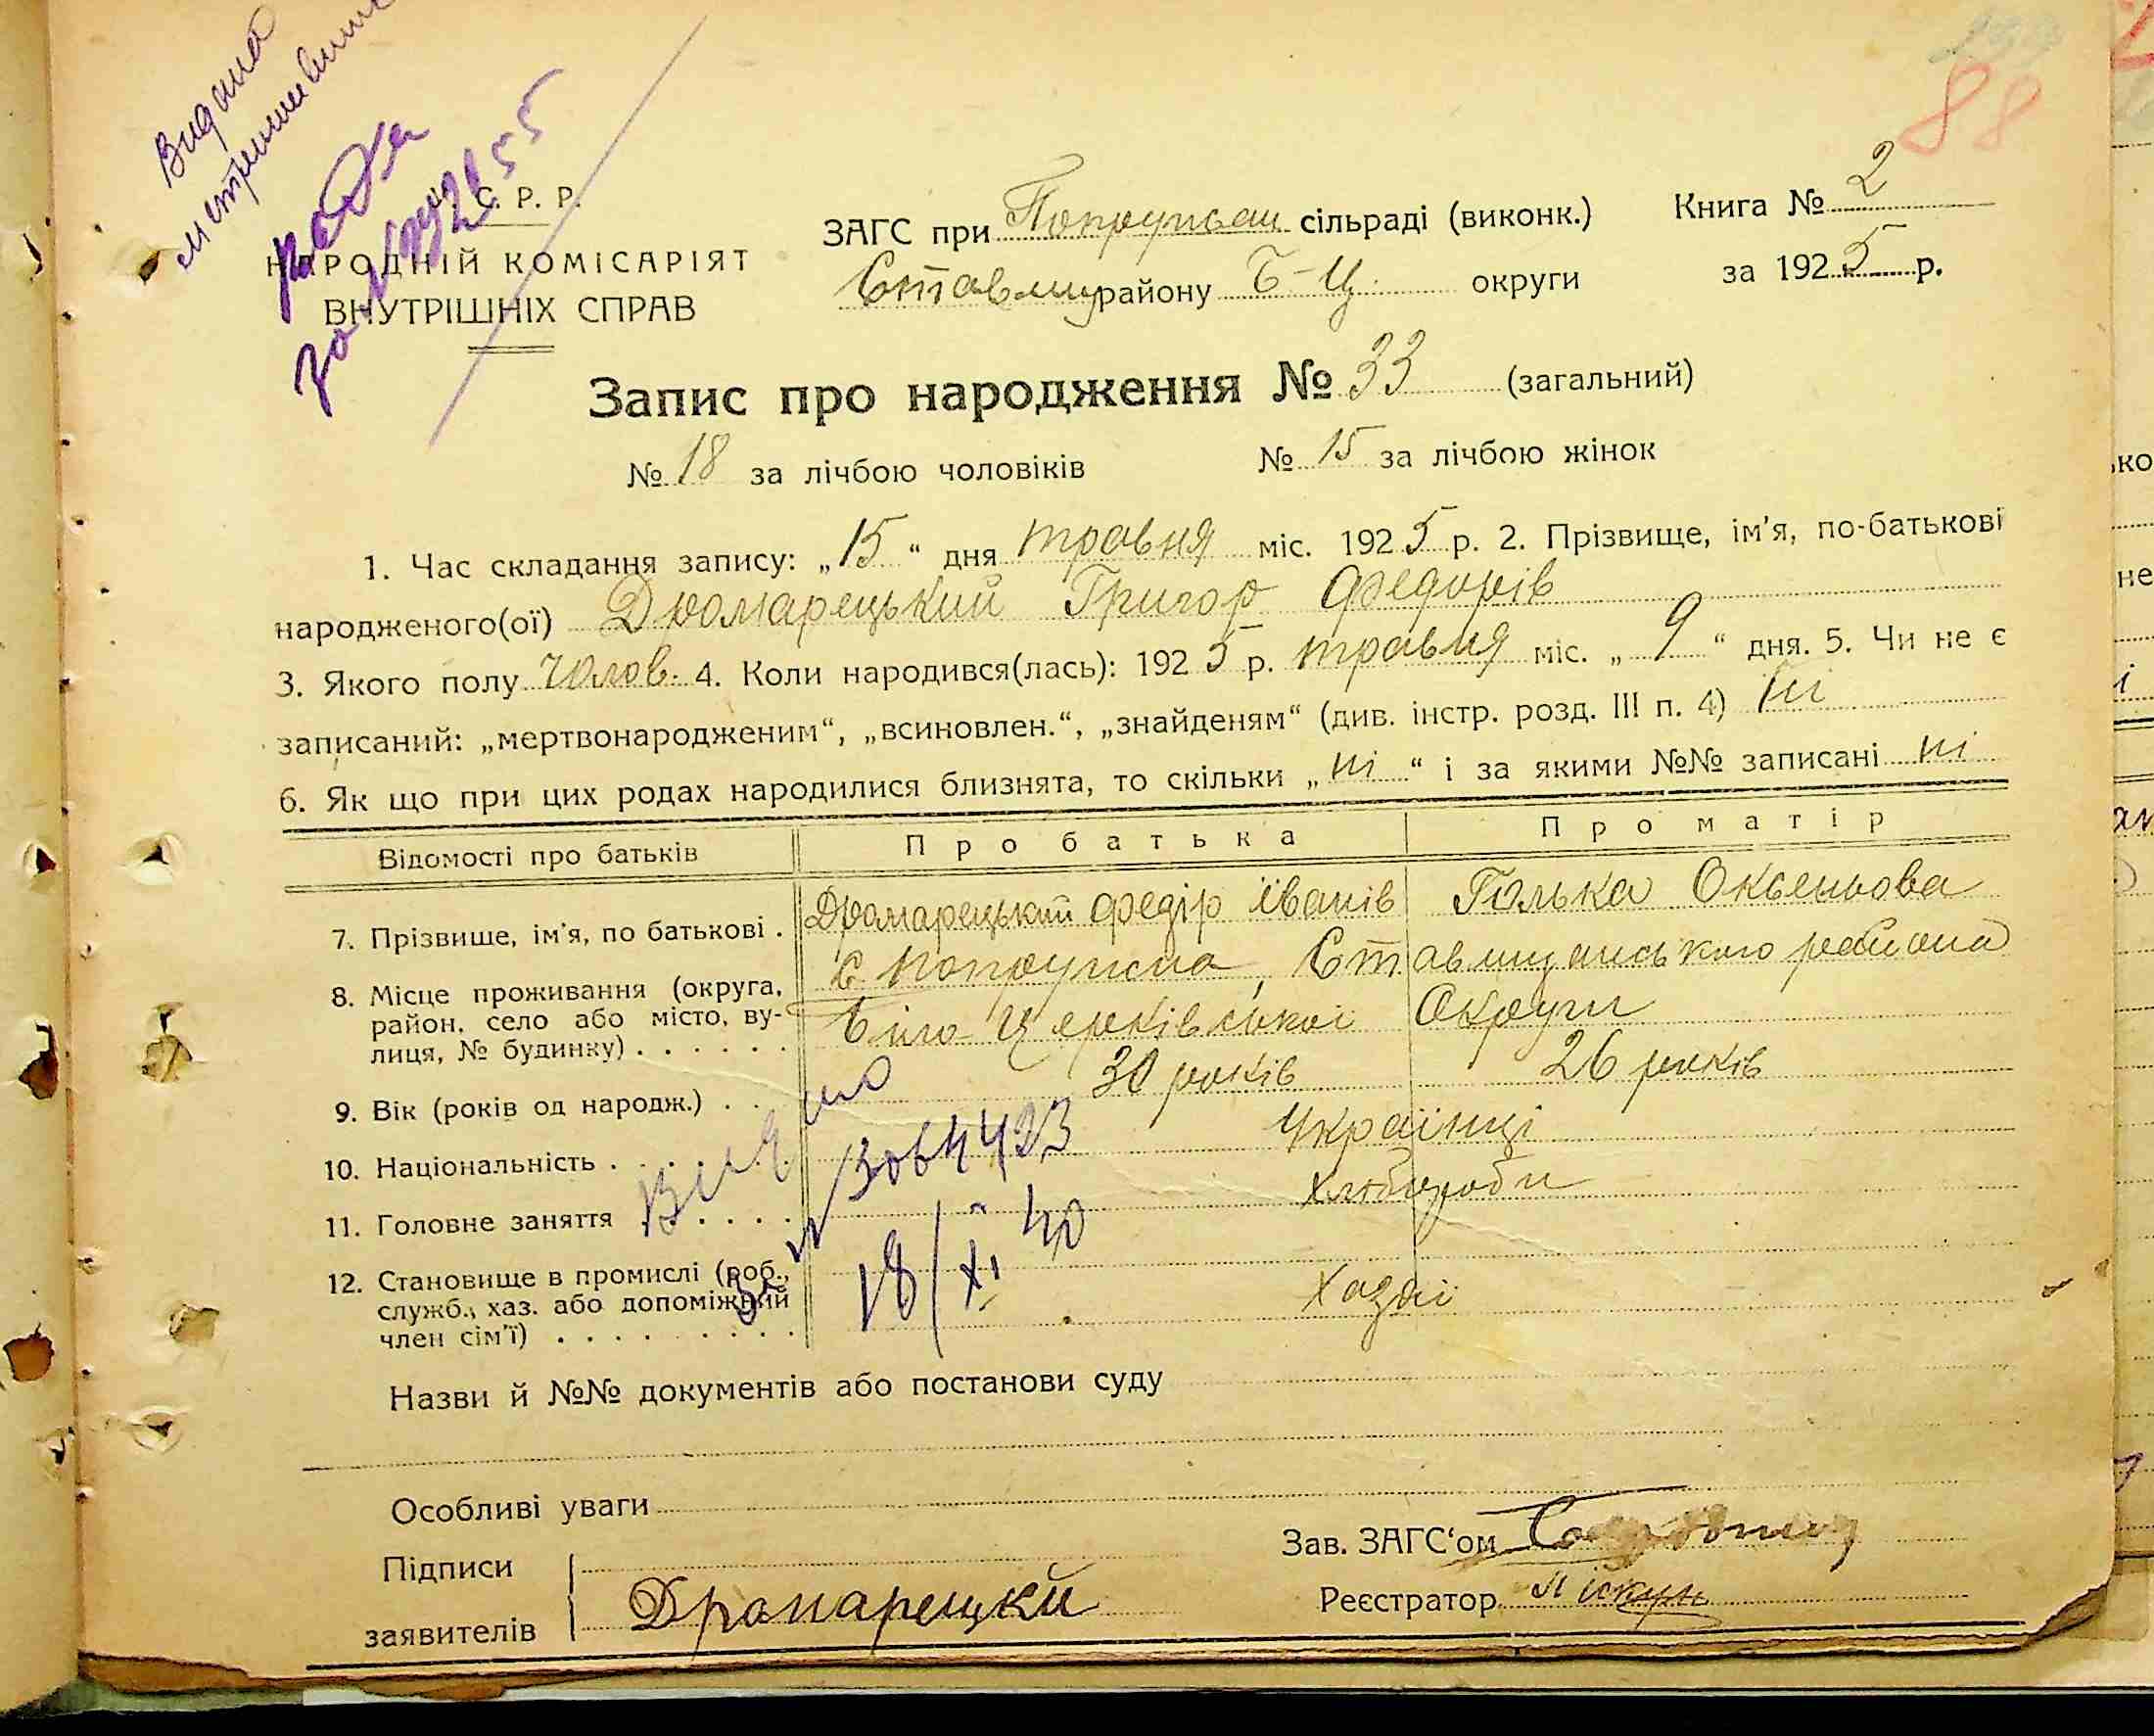 Видана
88
С. Р. Р.
НАРОДНІЙ КОМІСАРІЯТ
ВНУТРІШНІХ СПРАВ
ЗАГС при сільраді (виконк.) Книга № 2
району Б-Ц. округи за 1925 р.
Запис про народження № 33 (загальний)
№ 18 за лічбою чоловіків № 15 за лічбою жінок
1. Час складання запису: „15“ дня травня міс. 1925 р. 2. Прізвище, ім'я, по-батькові
народженого(ої) Дромарецький Григор Федорів
3. Якого полу Чолов. 4. Коли народився(лась): 1925 р. травня міс. „9“ дня. 5. Чи не є
записаний: „мертвонародженим“, „всиновлен.“, „знайденям“ (див. інстр. розд. III п. 4) Ні
6. Як що при цих родах народилися близнята, то скільки „ні“ і за якими №№ записані ні
Відомості про батьків Про батька Про матір
7. Прізвище, ім'я, по батькові . Дромарецький Федір Іванів Голька Оксеньова
8. Місце проживання (округа, с. Попружна, Ставищанського району
район, село або місто, ву- Біло-Церківської Округи
лиця, № будинку) . . . . . .
9. Вік (років од народж.) . . 30 років 26 років
10. Національність . . . . Українці
11. Головне заняття . . . . . Хлібороби
12. Становище в промислі (роб.,
служб., хаз. або допоміжний Хазяї
член сім'ї) . . . . . . . . .
Видано
18/XI 40
Назви й №№ документів або постанови суду
Особливі уваги
Підписи Зав. ЗАГС'ом
заявителів Дромарецкй Реєстратор Піскун